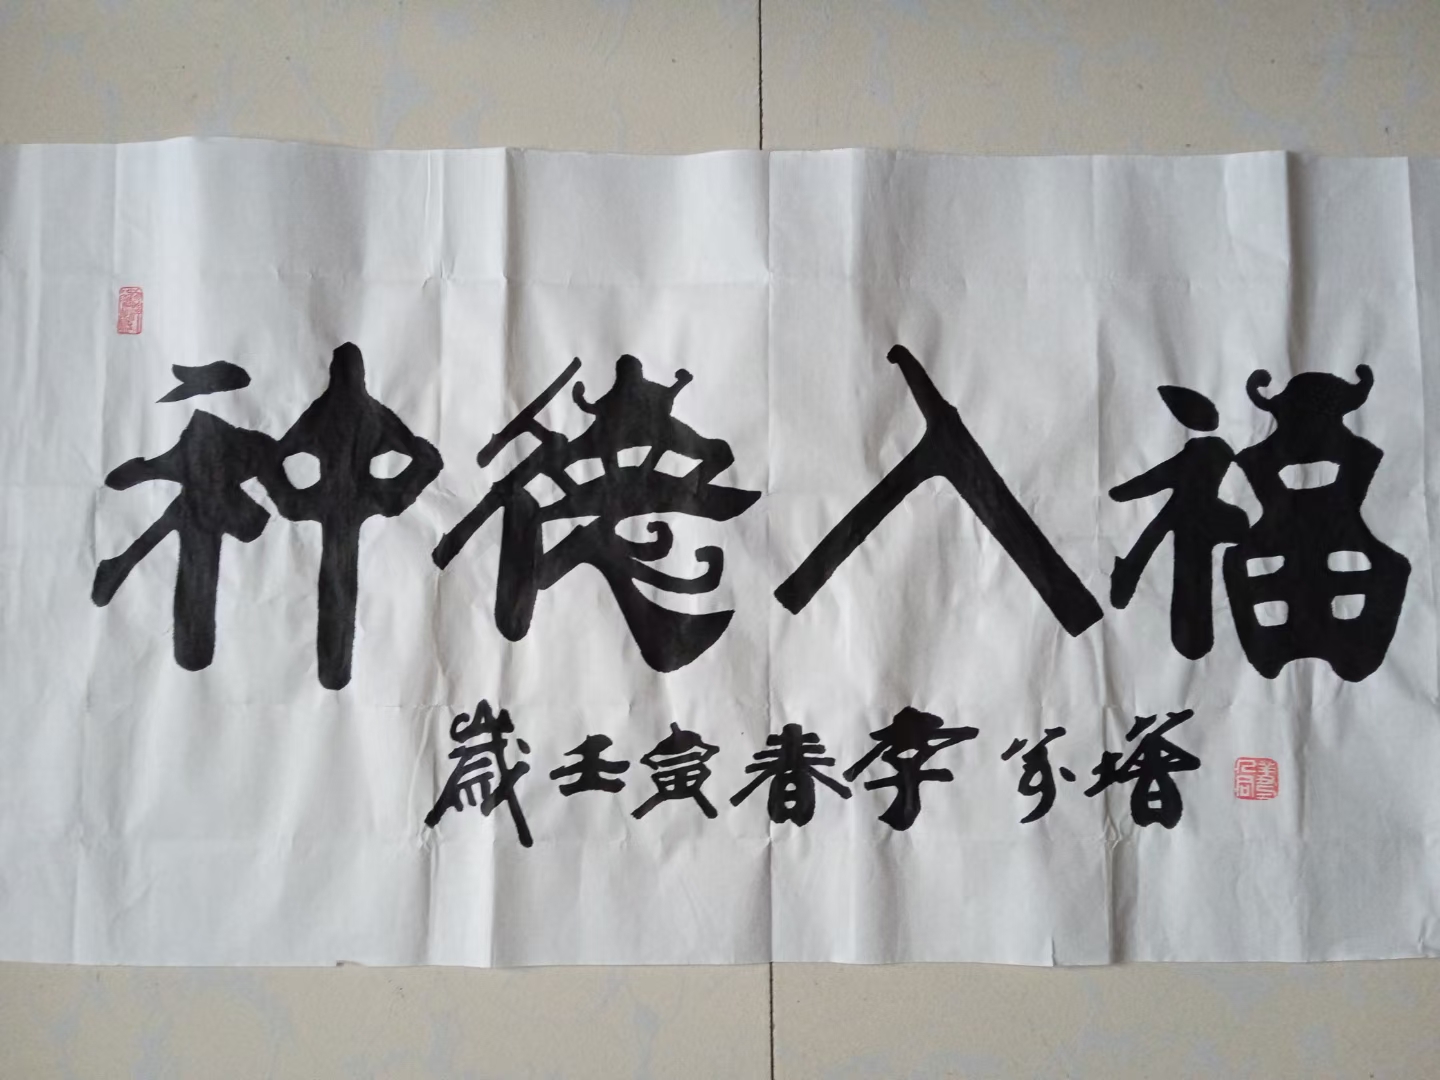 神德入福
歲壬寅春李万增